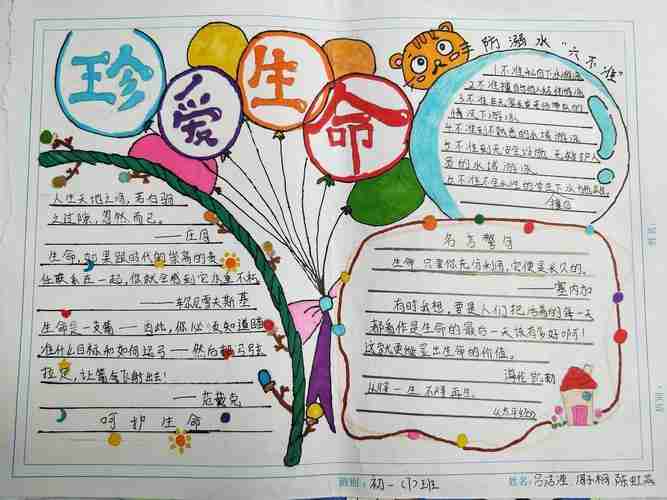 珍爱生命
防溺水"六不准"
1.不准私自下水游泳
2.不准擅自与他人结伴游泳
3.不准在无家长或老师带领的
情况下游泳
4.不准到不熟悉的水域游泳
5.不准到无安全设施、无救护人
员的水域游泳
6.不准不会水性的学生下水施救
人生天地之间,若白驹
之过隙,忽然而已。
——庄周
生命,如果跟时代的崇高的责
任联系在一起,你就会感到它永垂不朽
——车尔尼雪夫斯基
生命是一支箭——因此,你必须知道瞄
准什么目标和如何运弓——然后把弓弦
拉足,让箭飞射出去!
——范戴克
呵护生命
名言警句
生命 只要你充分利用,它便是长久的。
——塞内加
有时我想,要是人们把活着的每一天
都看作是生命的最后一天该有多好啊!
这就更能显出生命的价值。
海伦·凯勒
人生一生 不得再生
班别:初一(1)班
姓名: